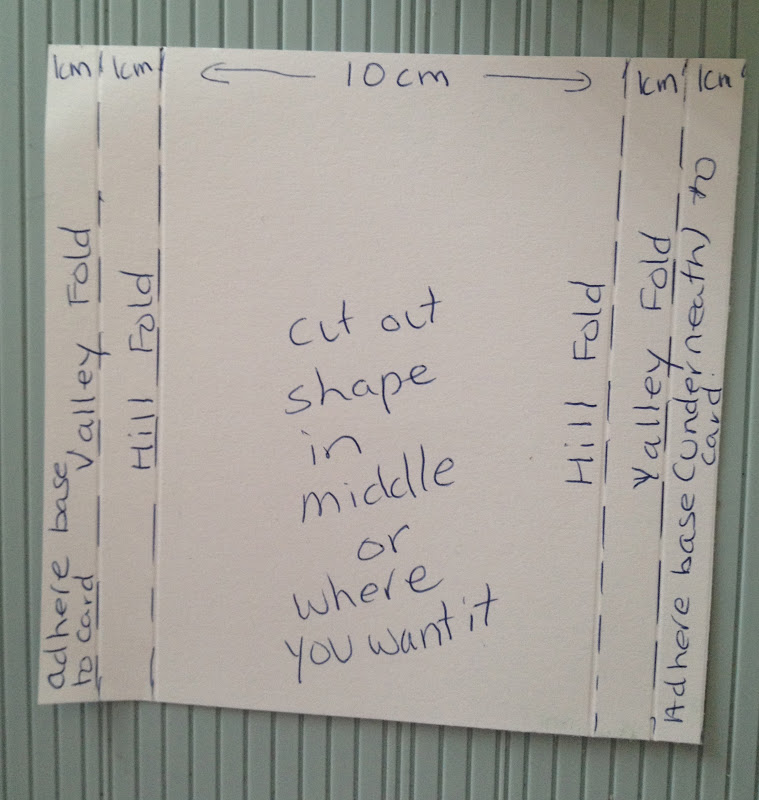 1cm
1cm
10cm
1cm
1cm
adhere base
to card
Valley Fold
Hill Fold
cut out
shape
in
middle
or
where
you want it
Hill Fold
Valley Fold
Adhere base (underneath) to
card.